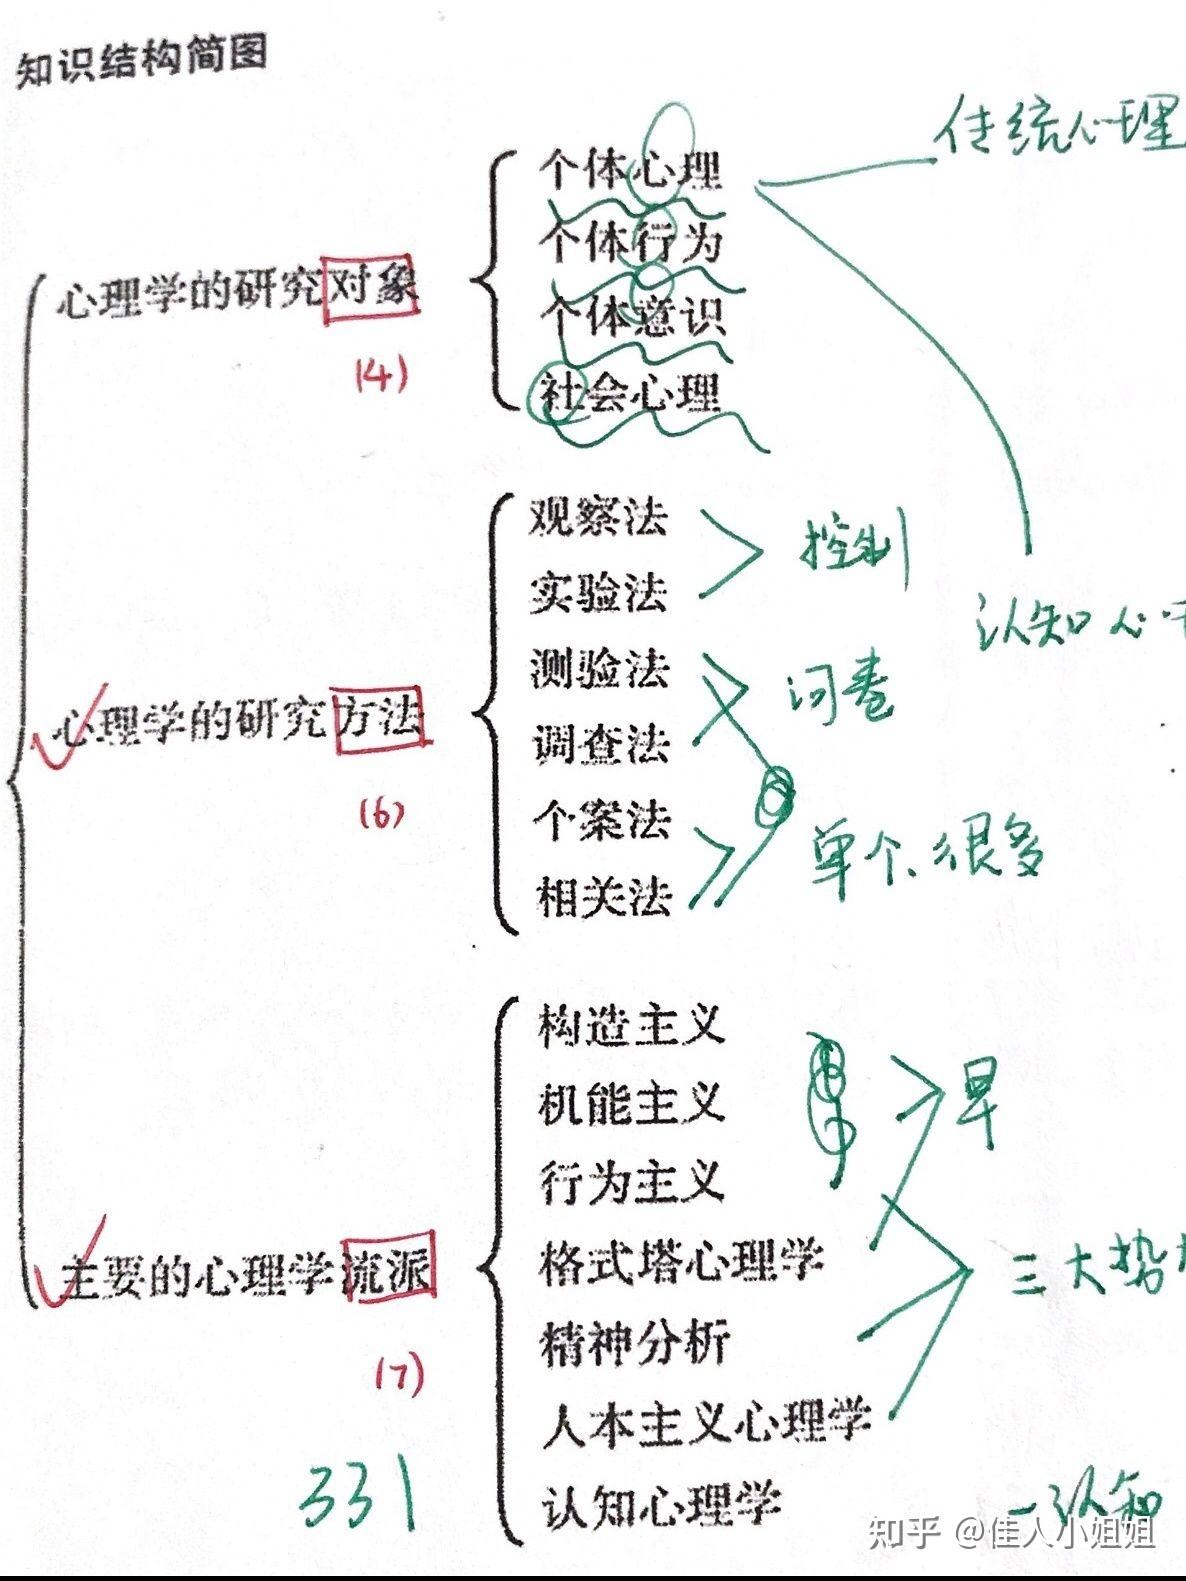 知识结构简图
传统心理
个体心理
个体行为
心理学的研究对象
个体意识
(4)
社会心理
观察法
控制
实验法
认知心
测验法
问卷
心理学的研究方法
调查法
(6)
个案法
单个、很多
相关法
构造主义
早
机能主义
行为主义
主要的心理学流派
格式塔心理学
三大势
精神分析
(7)
人本主义心理学
331
认知心理学
一认知
知乎 @佳人小姐姐